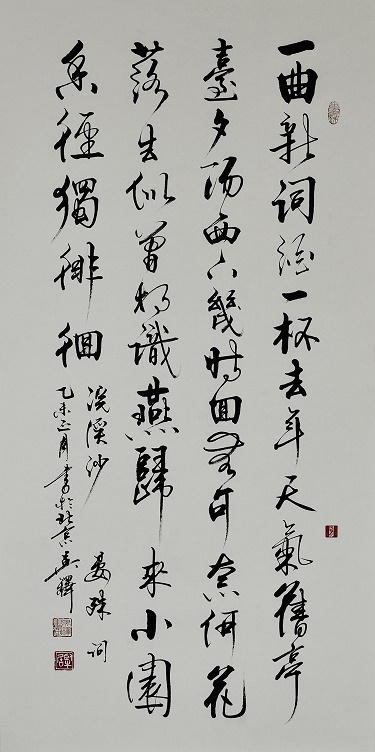 一曲新詞酒一杯去年天氣舊亭
臺夕陽西下幾時回無可奈何花
落去似曾相識燕歸來小園
香徑獨徘徊
浣溪沙 晏殊 詞
乙未正月書於北京